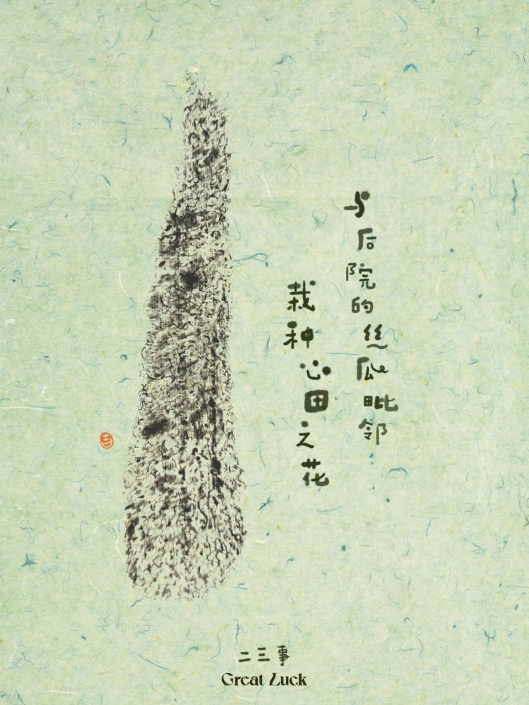 与后院的丝瓜毗邻
栽种心田之花
二三事
Great Luck